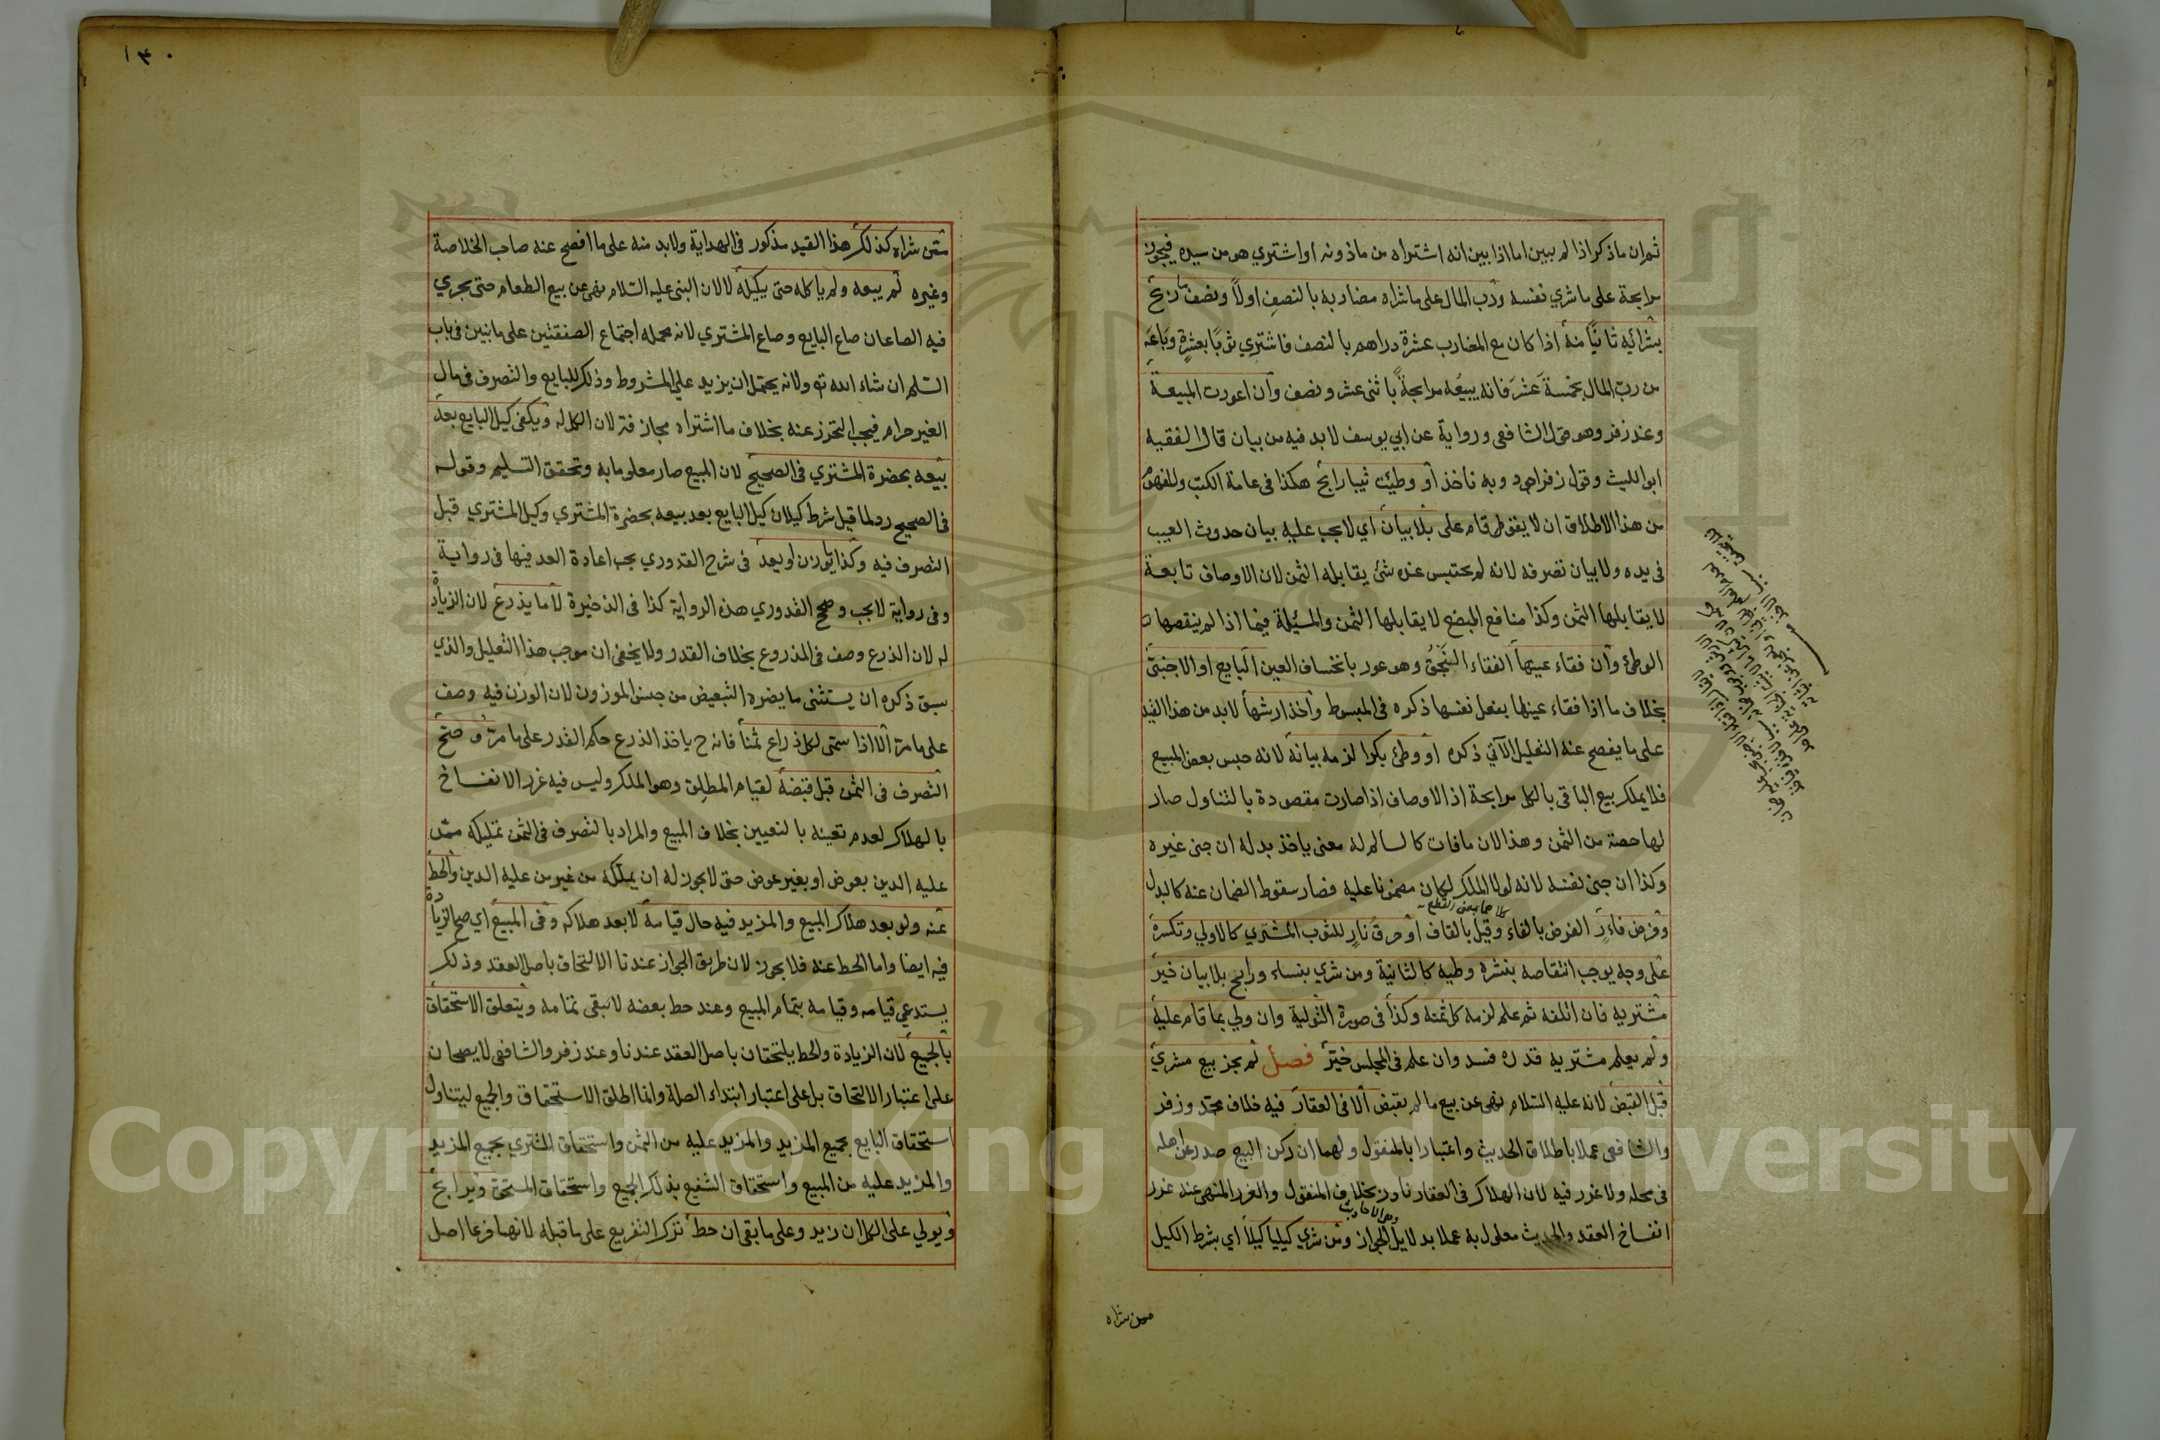 ثم ان ما ذكر اذا لم يبين اما اذا بين انه اشتراه من ماذونه او اشتري هو من سيده فيجوز
مرابحة على ما شري نفسه ورب المال على ما شراه مضاربه بالنصف اولا ونصف ما ربح
بشرائه ثانيا منه اذا كان مع المضارب عشرة دراهم بالنصف فاشتري ثوبا بعشرة وباعه
من رب المال بخمسة عشر فانه يبيعه مرابحة باثنى عشر ونصف وان اعورت المبيعة
وعند زفر وهو قول الشافعى ورواية عن ابي يوسف لا بد فيه من بيان قال الفقيه
ابو الليث وقول زفر اجود وبه ناخذ او وطئت ثيبا رابح هكذا فى عامة الكتب والمفهوم
من هذا الاطلاق ان لا يقول قام على بلا بيان اي لا يجب عليه بيان حدوث العيب
فى يده ولا بيان تصرفه لانه لم يحتبس عنده شئ يقابله الثمن لان الاوصاف تابعة
لا يقابلها الثمن وكذا منافع البضع لا يقابلها الثمن والمسئلة فيما اذا لم ينقصها
الوطئ وان فقاء عينها الفقاء وهو عور بانخساف العين البايع او الاجنبى
بخلاف ما اذا فقاء عينها بفعل نفسها ذكره فى المبسوط واخذ ارشها لا بد من هذا القيد
على ما يفصح عنه التعليل الآتي ذكره او وطئ بكرا لزمه بيانه لانه حبس بعض المبيع
فلا يملك بيع الباقى بالكل مرابحة اذ الاوصاف اذا صارت مقصودة بالتناول صار
لها حصة من الثمن وهذا لان ما فات كالسالم له معنى ياخذ بدله ان جنى غيره
وكذا ان جنى نفسه لانه لولا الملك لكان مضمونا عليه فصار سقوط الضمان عنه كالبدل
كلاهما بمعنى القطع
وقرض فاءر القرض بالفاء وقيل بالقاف او حرق نار للثوب المشتري كالاولي وتكسره
على وجه يوجب انتقاصه بنشره وطيه كالثانية ومن شري بنساء ورابح بلا بيان خير
مشتريه فان اتلفه ثم علم لزمه كل ثمنه وكذا فى صورة التولية وان ولي بما قام عليه
ولم يعلم مشتريه قدره فسد وان علم فى المجلس خير فصل لم يجز بيع مشري
قبل القبض لانه عليه السلام نهى عن بيع ما لم يقبض الا فى العقار فيه خلاف محمد وزفر
والشافعى عملا باطلاق الحديث واعتبارا بالمنقول ولهما ان ركن البيع صدر عن اهله
فى محله ولا غرر فيه لان الهلاك فى العقار نادر بخلاف المنقول والغرر المنهى عنه غرر
وهو الاحاديث
انفساخ العقد والحديث معلول به عملا بدلايل الجواز ومن شري كيليا كيلا اي بشرط الكيل
من شراه
١٣٠
متى شراه كذلك هذا القيد مذكور فى الهداية ولا بد منه على ما افصح عنه صاحب الخلاصة
وغيره لم يبعه ولم ياكله حتى يكيله لا لان النبى عليه السلام نهى عن بيع الطعام حتى يجري
فيه الصاعان صاع البايع وصاع المشتري لانه محمله اجتماع الصفقتين على ما نبين فى باب
السلم ان شاء الله تع ولانه يحتمل ان يزيد على المشروط وذلك للبايع والتصرف فى مال
الغير حرام فيجب التحرز عنه بخلاف ما اشتراه مجازفة لان الكل له ويكفى كيل البايع بعد
بيعه بحضرة المشتري فى الصحيح لان المبيع صار معلوما به وتحقق التسليم وقوله
فى الصحيح رد لما قيل شرط كيلان كيل البايع بعد بيعه بحضرة المشتري وكيل المشتري قبل
التصرف فيه وكذا يوزن او يعد فى شرح القدوري يجب اعادة العد فيها فى رواية
وفى رواية لا يجب وصحح القدوري هذه الرواية كذا فى الذخيرة لا ما يذرع لان الزيادة
له لان الذرع وصف فى المذروع بخلاف القدر ولا يخفى ان موجب هذا التعليل والذي
سبق ذكره ان يستثنى ما يضره التبعيض من جنس الموزون لان الوزن فيه وصف
على ما مر الا اذا سمى لكل ذراع ثمنا فانه ح ياخذ الذرع حكم القدر على ما مر وصح
التصرف فى الثمن قبل قبضه لقيام المطلق وهو الملك وليس فيه غرر الانفساخ
بالهلاك لعدم تعينه بالتعيين بخلاف المبيع والمراد بالتصرف فى الثمن تمليكه ممن
عليه الدين بعوض او بغير عوض حتى لا يجوز له ان يملكه من غير من عليه الدين والحط
عنه ولو بعد هلاك المبيع والمزيد فيه حال قيامه لا بعد هلاكه وفى المبيع اي صح الزيادة
فيه ايضا واما الحط عنه فلا يجوز لان طريق الجواز عندنا الالتحاق باصل العقد وذلك
يستدعي قيامه وقيامه بتمام المبيع وعند حط بعضه لا يبقى تمامه ويتعلق الاستحقاق
بالجميع لان الزيادة والحط يلتحقان باصل العقد عندنا وعند زفر والشافعى لا يصحان
على اعتبار الالتحاق بل على اعتبار ابتداء الصلة وانما اطلق الاستحقاق والجميع ليتناول
استحقاق البايع بجميع المزيد والمزيد عليه من الثمن واستحقاق المشتري بجميع المزيد
والمزيد عليه من المبيع واستحقاق الشفيع بذلك الجميع واستحقاق المستحق ويرابح
ويولي على الكل ان زيد وعلى ما بقى ان حط ترك التفريع على ما قبله لانهما فرعا اصل
Copyright © King Saud University